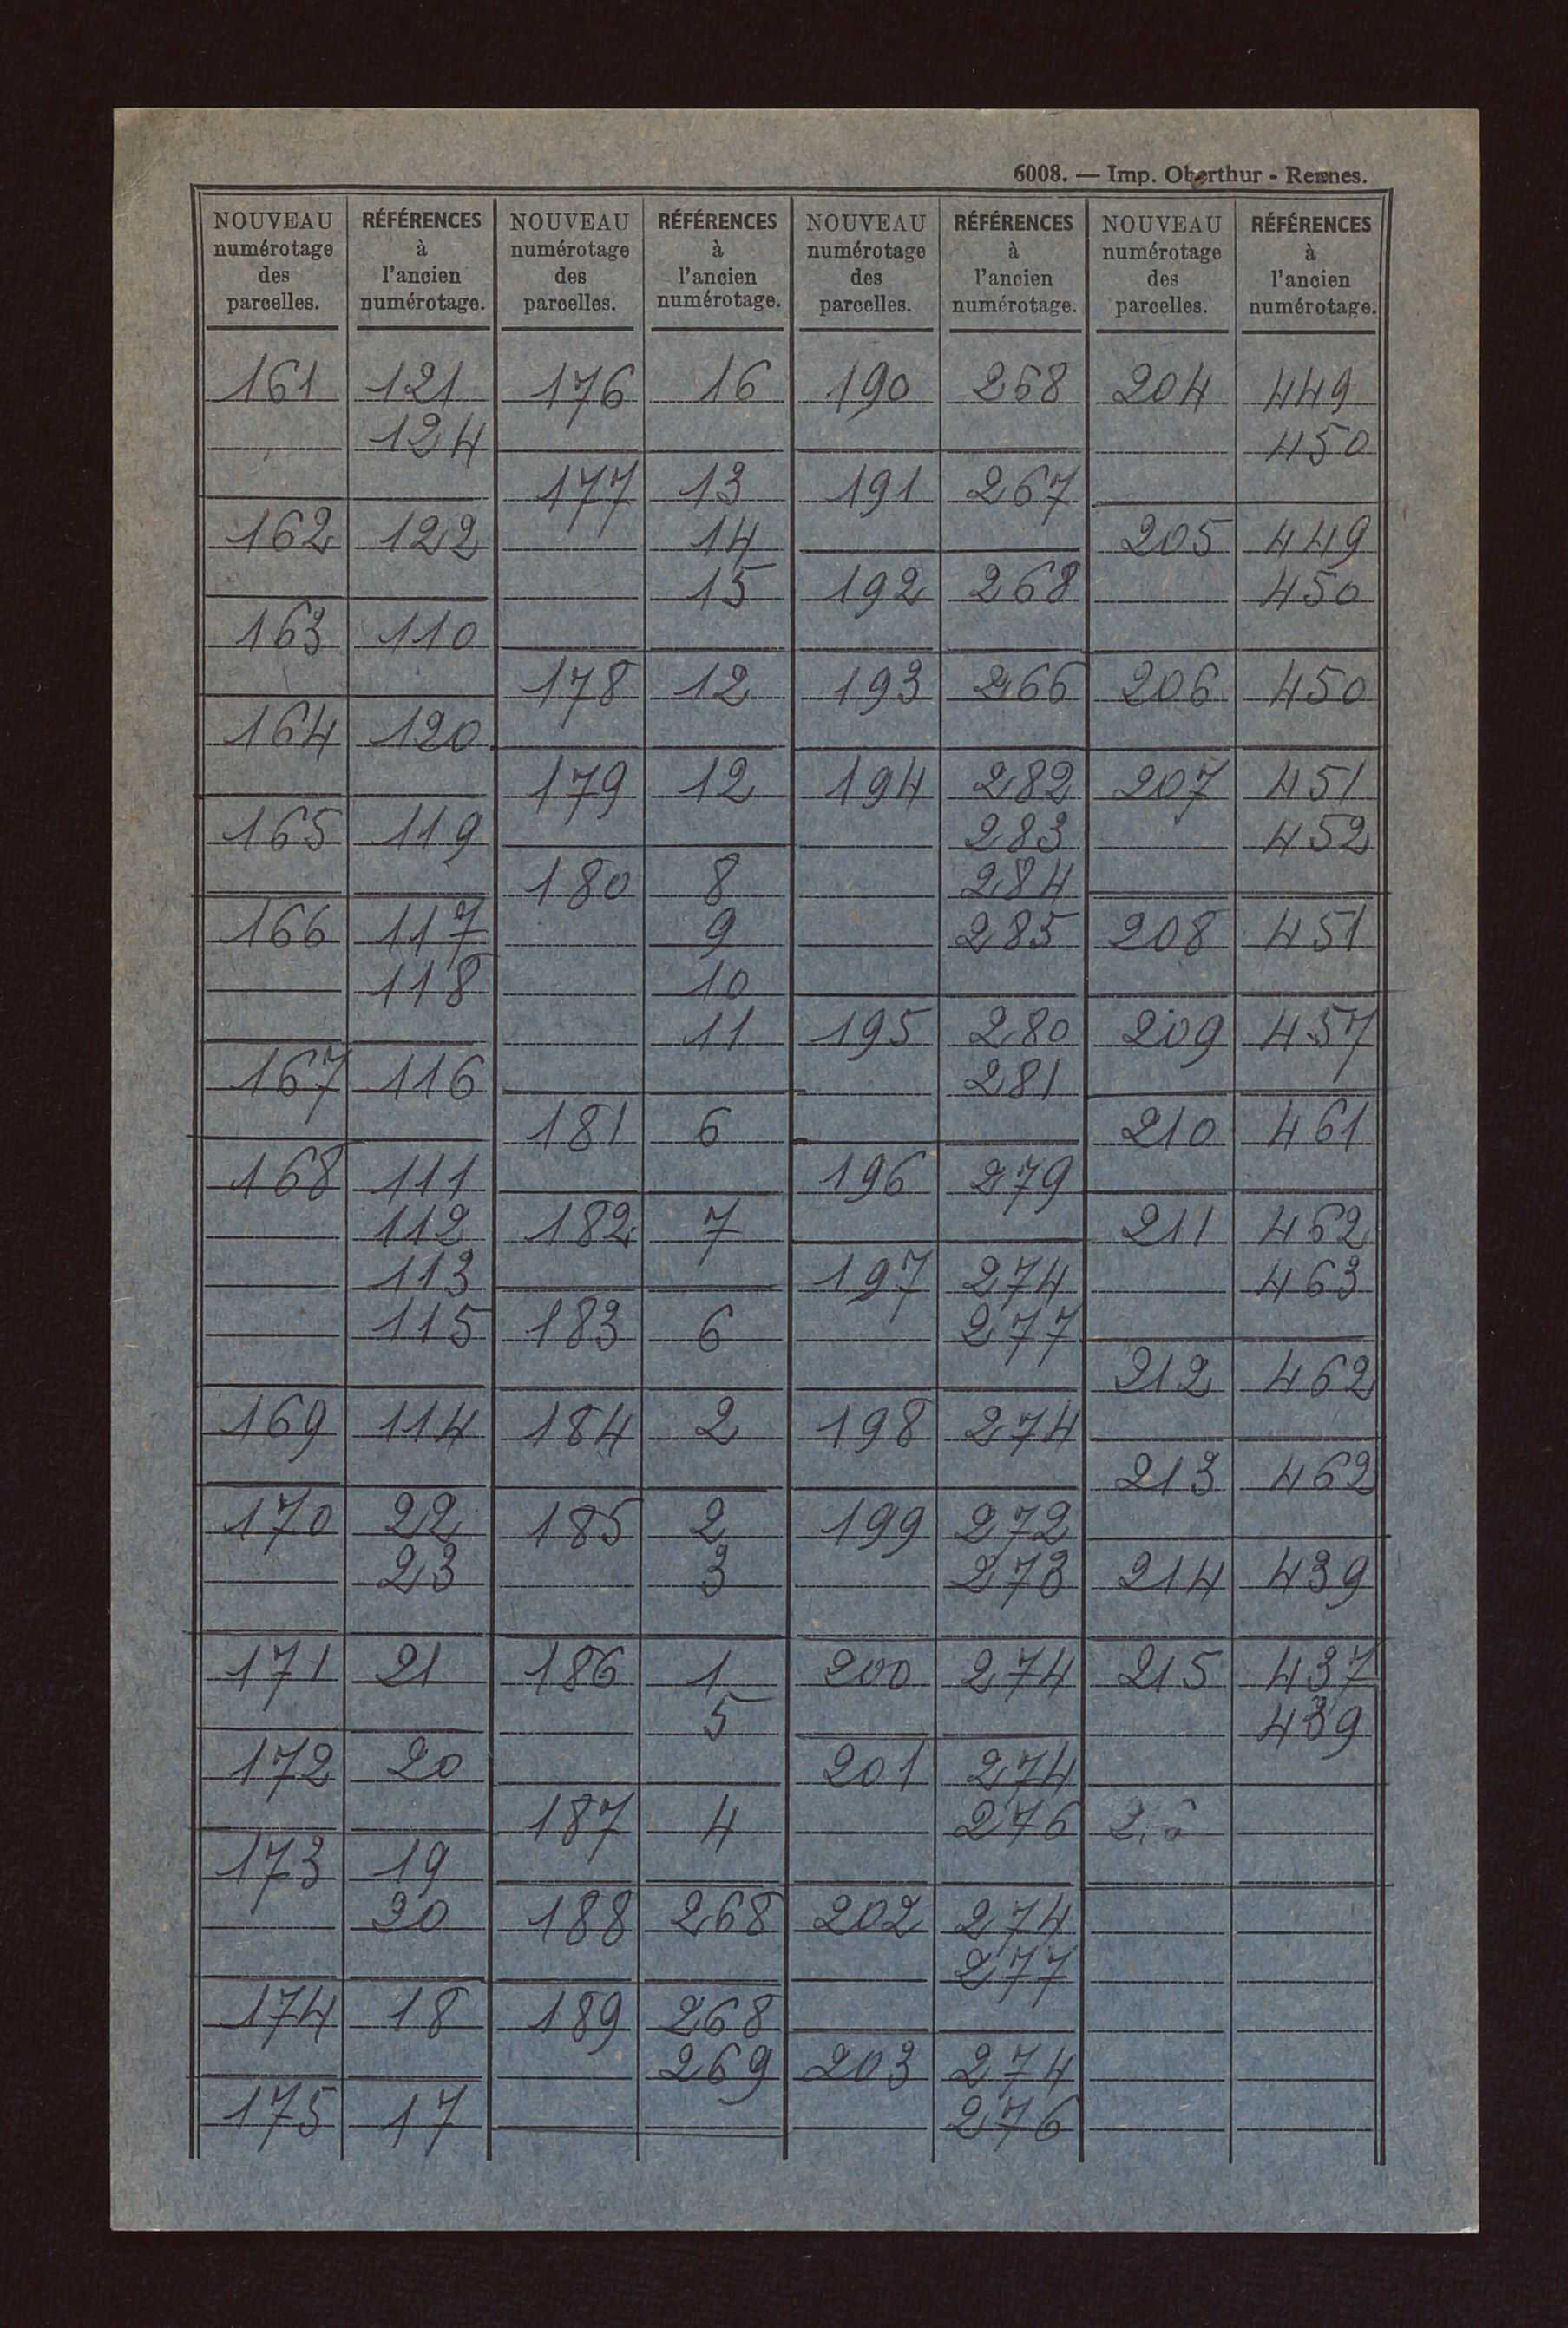 6008. — Imp. Oberthur - Rennes.
NOUVEAU numérotage des parcelles. | RÉFÉRENCES à l'ancien numérotage. | NOUVEAU numérotage des parcelles. | RÉFÉRENCES à l'ancien numérotage. | NOUVEAU numérotage des parcelles. | RÉFÉRENCES à l'ancien numérotage. | NOUVEAU numérotage des parcelles. | RÉFÉRENCES à l'ancien numérotage.
161 121 176 16 190 268 204 449
124 450
177 13 191 267
162 122 14 205 449
15 192 268 450
163 110
178 12 193 266 206 450
164 120
179 12 194 282 207 451
165 119 283 452
180 8 284
166 117 9 285 208 451
118 10
11 195 280 209 457
167 116 281
181 6 210 461
168 111 196 279
112 182 7 211 462
113 197 274 463
115 183 6 277
212 462
169 114 184 2 198 274
213 462
170 22 185 2 199 272
23 3 273 214 439
171 21 186 1 200 274 215 437
5 439
172 20 201 274
187 4 276
173 19
20 188 268 202 274
277
174 18 189 268
269 203 274
175 17 276